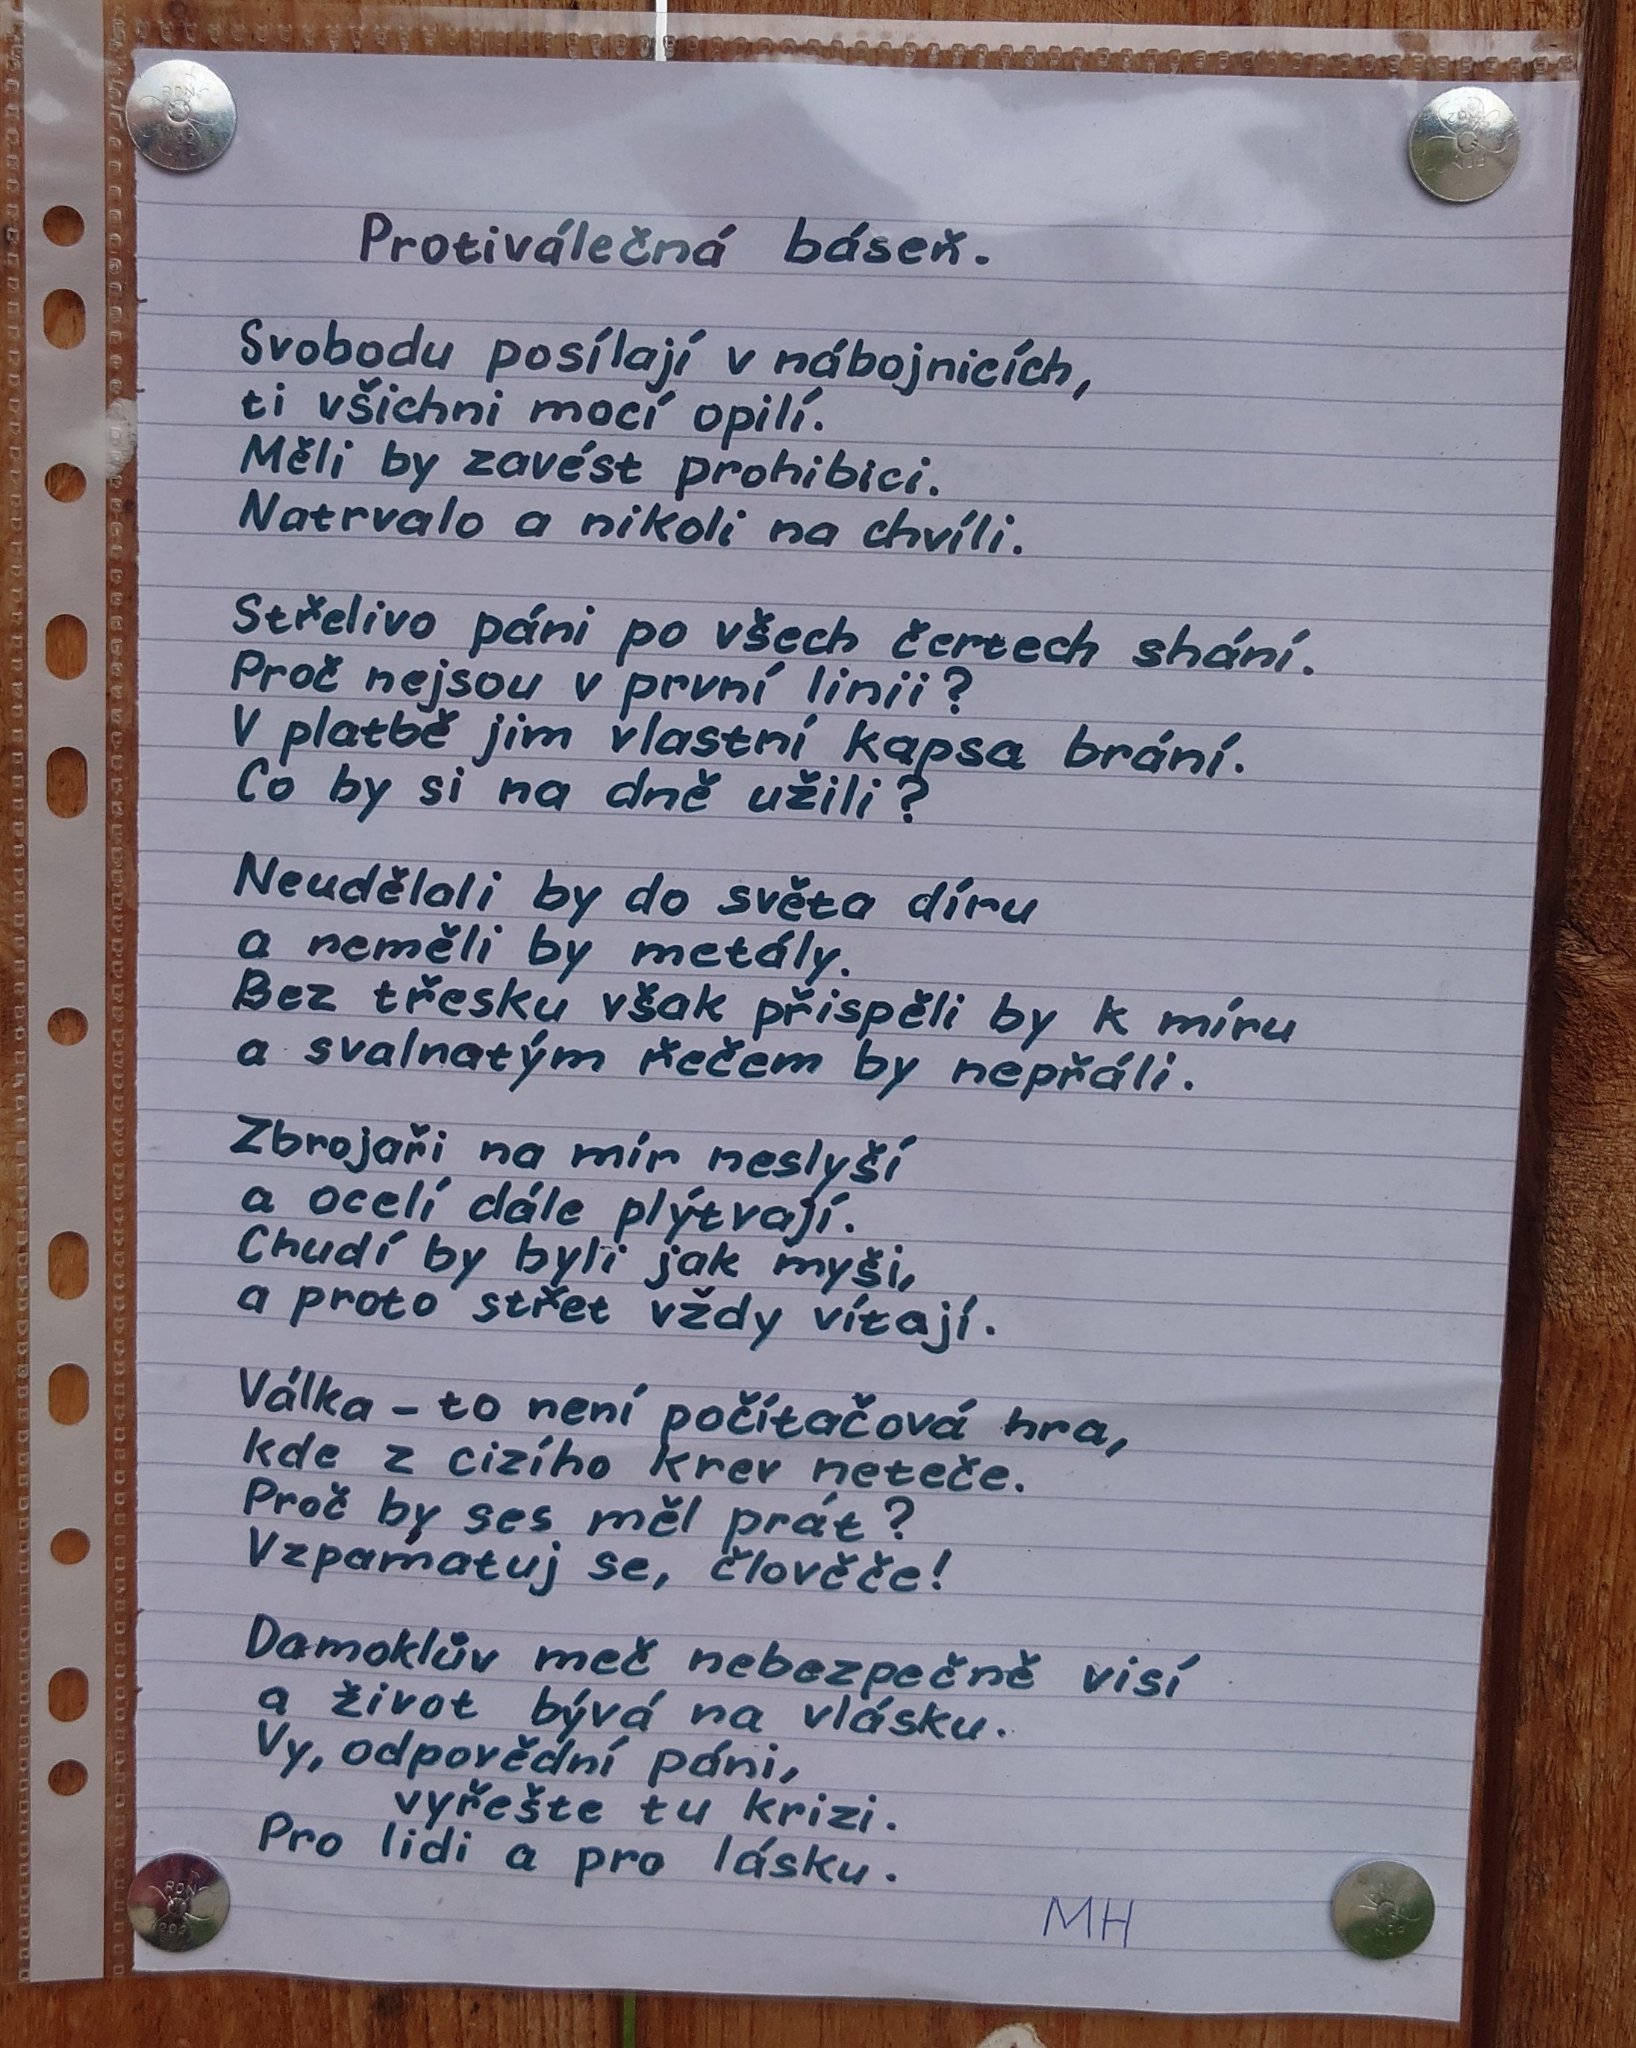 Protiválečná báseň.
Svobodu posílají v nábojnicích,
ti všichni mocí opilí.
Měli by zavést prohibici.
Natrvalo a nikoli na chvíli.
Střelivo páni po všech čertech shání.
Proč nejsou v první linii?
V platbě jim vlastní kapsa brání.
Co by si na dně užili?
Neudělali by do světa díru
a neměli by metály.
Bez třesku však přispěli by k míru
a svalnatým řečem by nepřáli.
Zbrojaři na mír neslyší
a ocelí dále plýtvají.
Chudí by byli jak myši,
a proto střet vždy vítají.
Válka – to není počítačová hra,
kde z cizího krev neteče.
Proč by ses měl prát?
Vzpamatuj se, člověče!
Damoklův meč nebezpečně visí
a život bývá na vlásku.
Vy, odpovědní páni,
vyřešte tu krizi.
Pro lidi a pro lásku.
MH